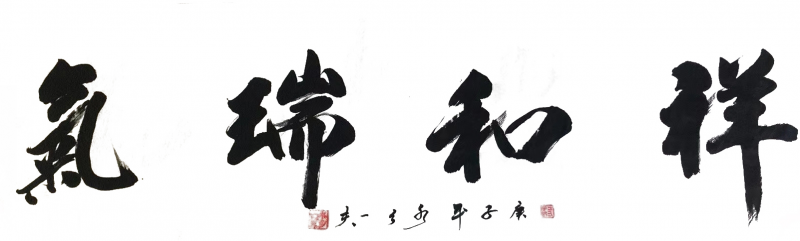 祥和瑞氣
庚子年